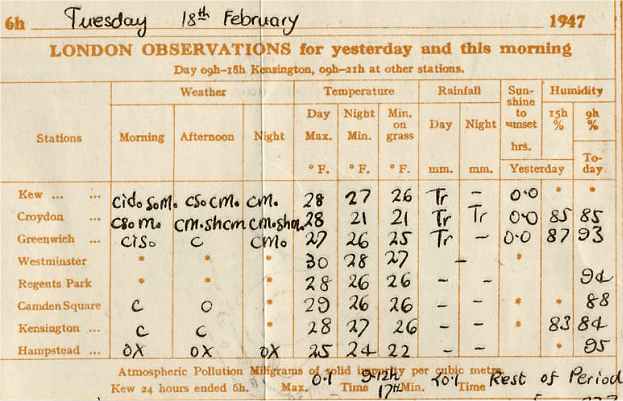 6h Tuesday 18th February 1947
LONDON OBSERVATIONS for yesterday and this morning
Day 09h-18h Kensington, 09h-21h at other stations.
Weather Temperature Rainfall Sun- Humidity
shine
to
sunset
Stations Morning Afternoon Night Day Night Min. Day Night 15h 9h
Max. Min. on % %
grass
hrs. To-
° F. ° F. ° F. mm. mm. Yesterday day
Kew ... ... cm. 28 27 26 Tr - 0.0 * *
Croydon ... 28 21 21 Tr Tr 0.0 85 85
Greenwich ... c cmo 27 26 25 Tr - 0.0 87 93
Westminster * * * 30 28 27 - *
Regents Park * * * 28 26 26 - - 94
Camden Square c o 29 26 26 - - * * 88
Kensington ... c c 28 27 26 - - * 83 84
Hampstead ... ox ox ox 25 24 22 - - * 95
Atmospheric Pollution Miligrams of solid impurity per cubic metre.
Kew 24 hours ended 6h. Max. 0.1 Time 9-12h 17th Min. <0.1 Time Rest of Period